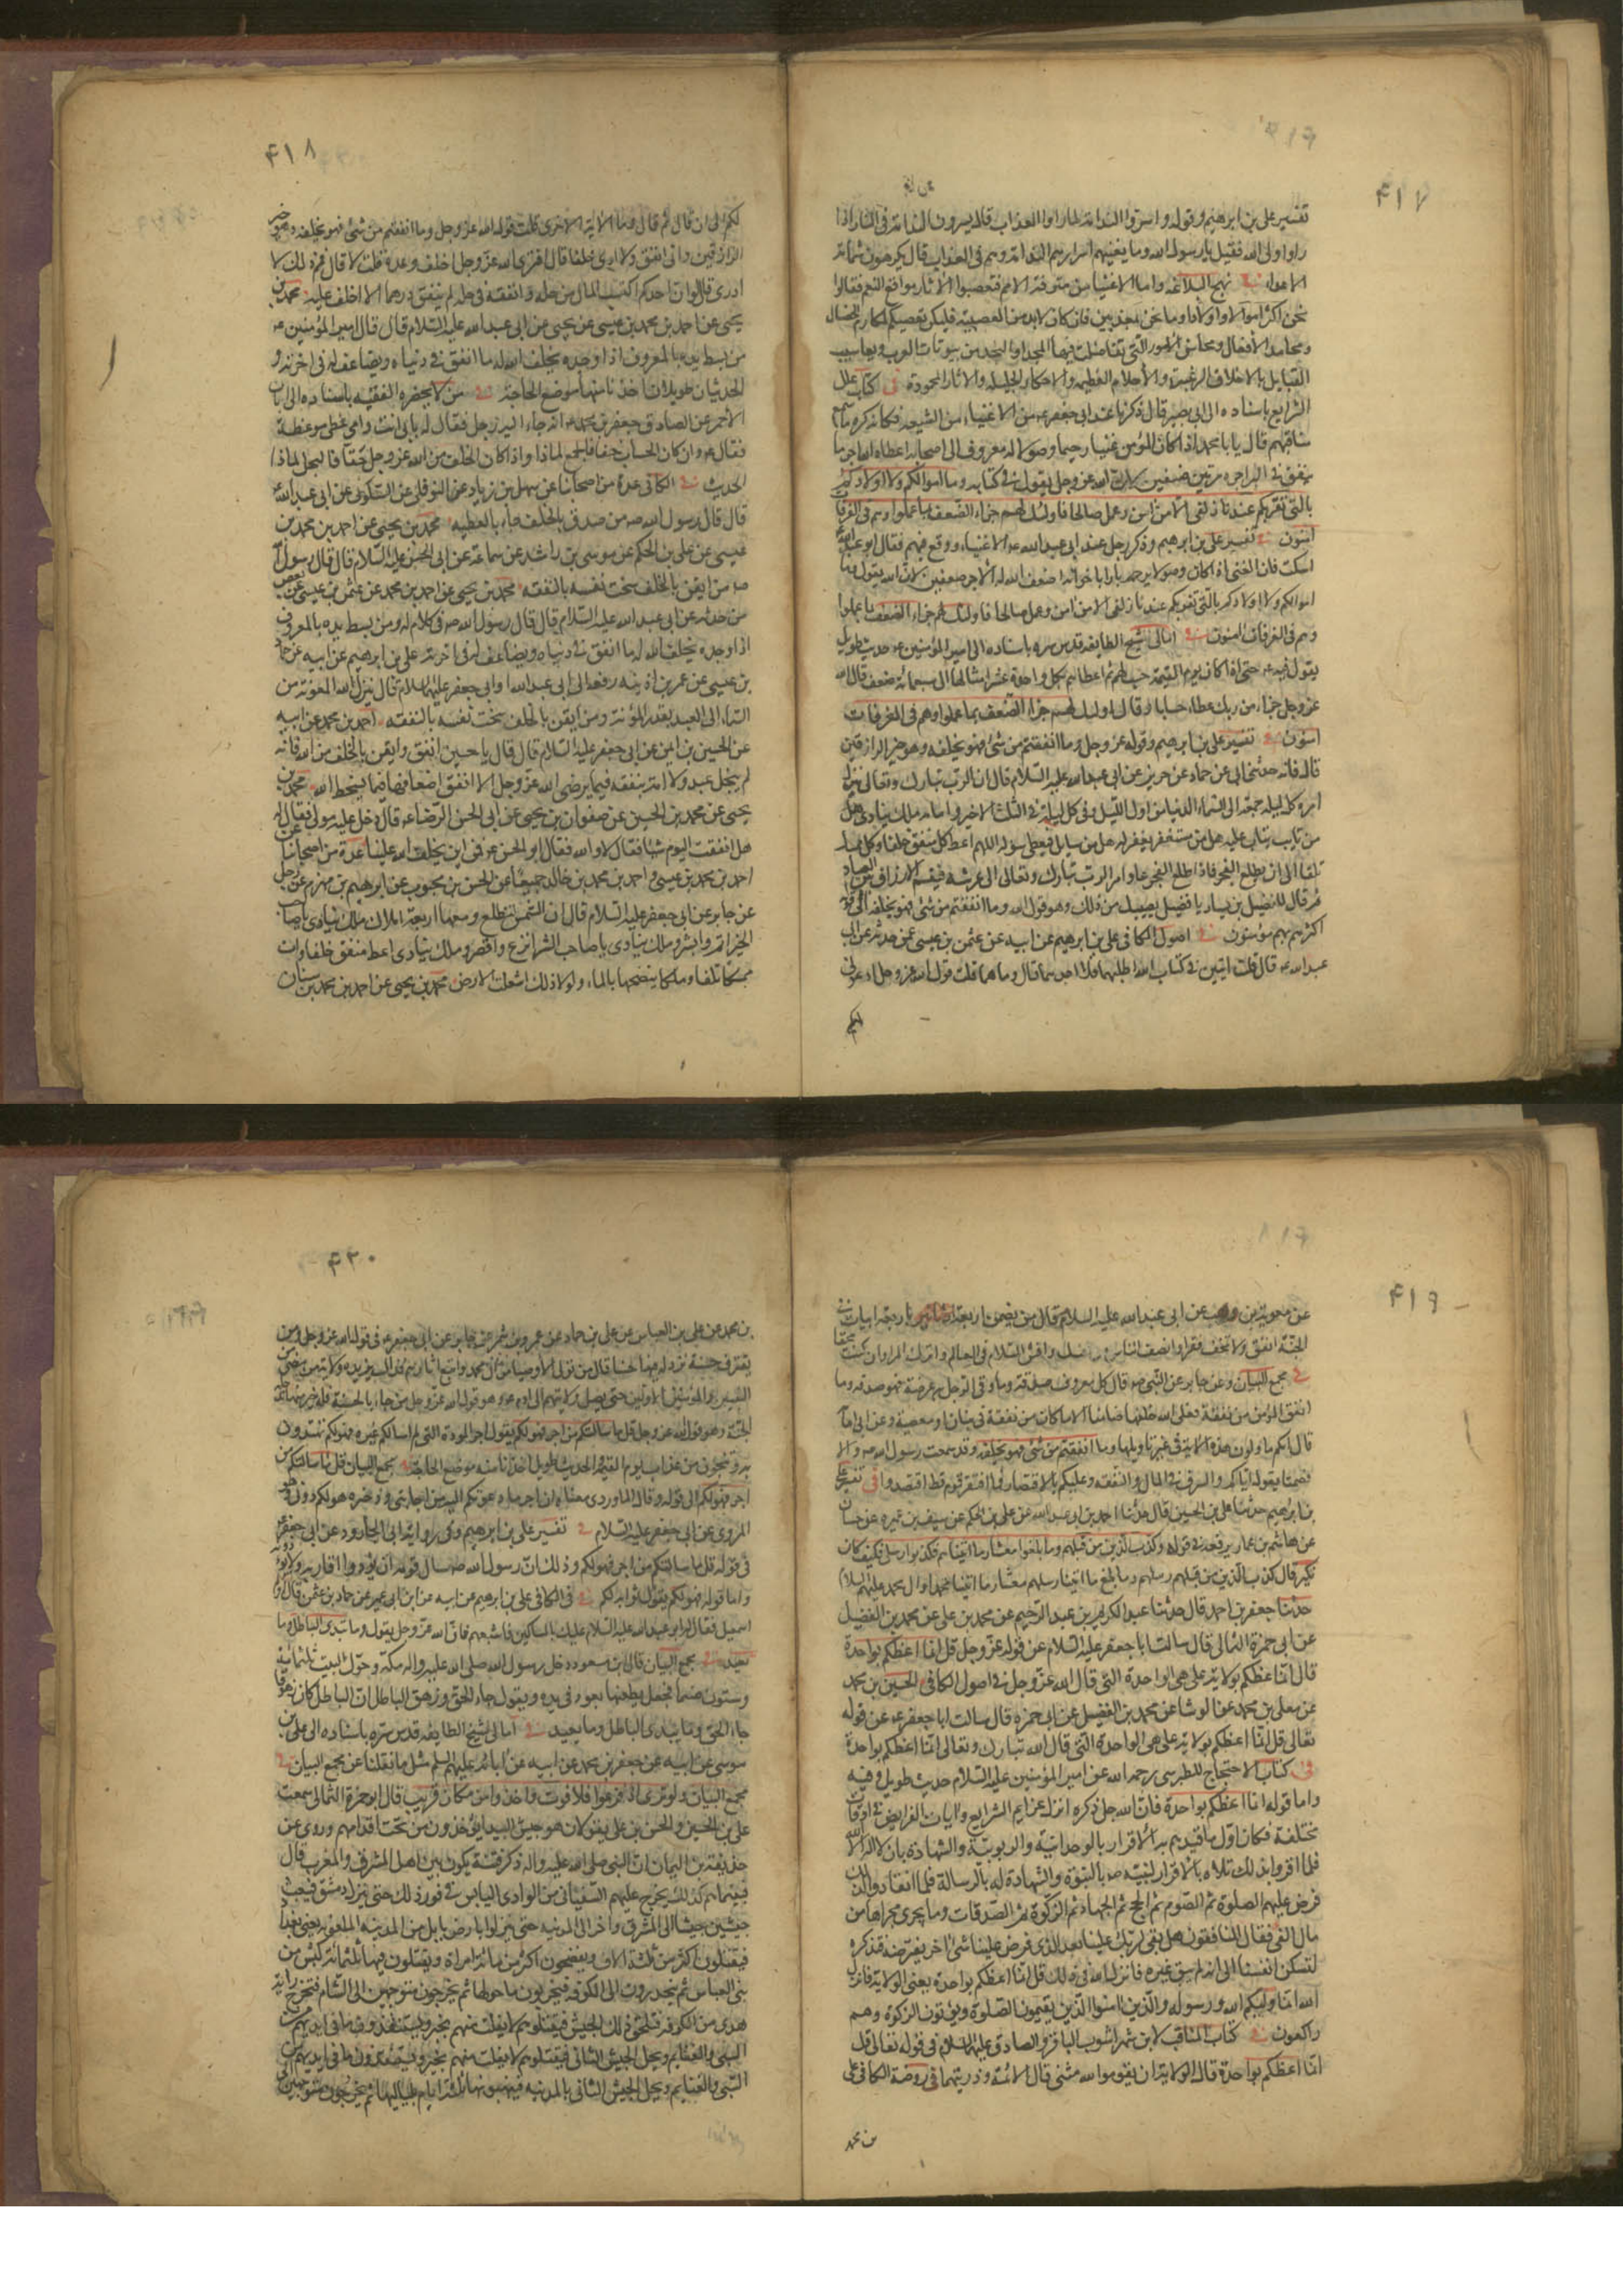 ۴۱۷
تفسير على بن ابرهيم وقوله واسروا الندامة لما راوا العذاب قال يسرون الندامة فى النار اذا
راوا ولى الله فقيل يا رسول الله وما يغنيهم اسرارهم الندامة وهم فى العذاب قال يكرهون شماتة
الاعداء فى نهج البلاغه واما الاغنياء من مترفة الامم فتعصبوا لآثار مواقع النعم فقالوا
نحن اكثر اموالا واولادا وما نحن بمعذبين فان كان لا بد من العصبية فليكن تعصبكم لمكارم الخصال
ومحامد الافعال ومحاسن الامور التى تفاضلت فيها المجداء والنجداء من بيوتات العرب ويعاسيب
القبايل بالاخلاق الرغيبة والأحلام العظيمة والاخطار الجليلة والاثار المحمودة فى كتاب علل
الشرايع باسناده الى ابى بصير قال ذكرنا عند ابى جعفر ع من الاغنياء من الشيعه فكانه كره ما سمع
منا فيهم قال يا با محمد اذا كان المؤمن غنيا رحيما وصولا له معروف الى اصحابه اعطاه الله اجر ما
ينفق فى البر اجره مرتين ضعفين لان الله عز وجل يقول فى كتابه وما اموالكم ولا اولادكم
بالتى تقربكم عندنا زلفى الا من امن وعمل صالحا فاولئك لهم جزاء الضعف بما عملوا وهم فى الغرفات
امنون فى تفسير على بن ابرهيم وذكر رجل عند ابى عبد الله ع الاغنياء ووقع فيهم فقال ابو عبد الله
اسكت فان الغنى اذا كان وصولا برحمه بارا باخوانه اضعف الله له الاجر ضعفين لان الله يقول وما
اموالكم ولا اولادكم بالتى تقربكم عندنا زلفى الا من امن وعمل صالحا فاولئك لهم جزاء الضعف بما عملوا
وهم فى الغرفات امنون فى امالى شيخ الطايفه قدس سره باسناده الى امير المؤمنين ع حديث طويل
يقول فيه ع حتى اذا كان يوم القيمة حسب لهم ثم اعطاهم بكل واحدة عشر امثالها الى سبعمائة ضعف قال الله
عز وجل جزاء من ربك عطاء حسابا وقال اولئك لهم جزاء الضعف بما عملوا وهم فى الغرفات
امنون فى تفسير على بن ابرهيم وقوله عز وجل وما انفقتم من شئ فهو يخلفه وهو خير الرازقين
قال فانه حدثنى ابى عن حماد عن حريز عن ابى عبد الله عليه السلام قال ان الرب تبارك وتعالى ينزل
امره كل ليلة جمعة الى السماء الدنيا من اول الليل وفى كل ليلة فى الثلث الاخير وامامه ملك ينادى هل
من تايب يتاب عليه هل من مستغفر يغفر له هل من سايل فيعطى سؤله اللهم اعط كل منفق خلفا وكل ممسك
تلفا الى ان يطلع الفجر فاذا طلع الفجر عاد امر الرب تبارك وتعالى الى عرشه فيقسم الارزاق بين العباد
ثم قال للفضيل بن يسار يا فضيل نصيبك من ذلك وهو قول الله وما انفقتم من شئ فهو يخلفه الى قوله
اكثرهم بهم مؤمنون فى اصول الكافى على بن ابرهيم عن ابيه عن عثمن بن عيسى عن حدثه عن ابى
عبد الله ع قال قلت ايتين فى كتاب الله اطلبهما فلا اجدهما قال وما هما قلت قول الله عز وجل ادعونى
۴۱۸
لكم الى ان قال ثم قال وما الاية الاخرى قلت قول الله عز وجل وما انفقتم من شئ فهو يخلفه وهو خير
الرازقين وانى انفق ولا ارى خلفا قال افترى الله عز وجل اخلف وعده قلت لا قال فمم ذلك قلت لا
ادرى قال لو ان احدكم اكتسب المال من حله وانفقه فى حله لم ينفق درهما الا اخلف عليه محمد بن
يحيى عن احمد بن محمد بن عيسى عن يحيى عن ابى عبد الله عليه السلام قال قال امير المؤمنين ع
من بسط يده بالمعروف اذا وجده يخلف الله له ما انفق فى دنياه ويضاعف له فى اخرته و
الحديثان طويلان اخذنا منهما موضع الحاجة فى من لا يحضره الفقيه باسناده الى ابان
الأحمر عن الصادق جعفر بن محمد ع انه جاء اليه رجل فقال له بابى انت وامى عظنى موعظة
فقال ع وان كان الحساب حقا فالجمع لماذا واذا كان الخلف من الله عز وجل حقا فالبخل لماذا
الحديث فى الكافى عدة من اصحابنا عن سهل بن زياد عن النوفلى عن السكونى عن ابى عبد الله ع
قال قال رسول الله ص من صدق بالخلف جاد بالعطيه محمد بن يحيى عن احمد بن محمد بن
عيسى عن على بن الحكم عن موسى بن راشد عن سماعة عن ابى الحسن عليه السلام قال قال رسول الله
ص من ايقن بالخلف سخت نفسه بالنفقه محمد بن يحيى عن احمد بن محمد عن عثمن بن عيسى عن بعض
من حدثه عن ابى عبد الله عليه السلام قال قال رسول الله ص فى كلام له ومن بسط يده بالمعروف
اذا وجده يخلف الله له ما انفق فى دنياه ويضاعف له فى اخرته على بن ابرهيم عن ابيه عن حماد
بن عيسى عن عمر بن اذينه رفعه الى ابى عبد الله او ابى جعفر عليهما السلام قال ينزل الله المعونه من
السماء الى العبد بقدر المؤنة ومن ايقن بالخلف سخت نفسه بالنفقه احمد بن محمد عن ابيه
عن الحسين بن ايمن عن ابى جعفر عليه السلام قال قال يا حسين انفق وايقن بالخلف من الله فانه
لم يبخل عبد ولا امة بنفقه فيما يرضى الله عز وجل الا انفق اضعافها فيما يسخط الله محمد بن
يحيى عن محمد بن الحسين عن صفوان بن يحيى عن ابى الحسن الرضا ع قال دخل عليه مولى فقال له
هل انفقت اليوم شيئا فقال لا والله فقال ابو الحسن ع فمن اين يخلف الله علينا عدة من اصحابنا عن
احمد بن محمد بن عيسى و احمد بن محمد بن خالد جميعا عن الحسن بن محبوب عن ابرهيم بن مهزم عن رجل
عن جابر عن ابى جعفر عليه السلام قال ان الشمس لتطلع ومعها اربعة املاك ملك ينادى يا صاحب
الخير اتم وابشر وملك ينادى يا صاحب الشر انزع واقصر وملك ينادى اعط منفق خلفا وات
ممسكا تلفا وملك ينضحها بالماء ولولا ذلك اشتعلت الارض محمد بن يحيى عن احمد بن محمد بن سنان
۴۱۹
عن معوية بن وهب عن ابى عبد الله عليه السلام قال من يضمن اربعة باربعة ابيات فى
الجنة انفق ولا تخف فقرا وانصف الناس من نفسك وافش السلام فى العالم واترك المراء وان كنت محقا
فى مجمع البيان وعن جابر عن النبى ص قال كل معروف صدقة وما وقى الرجل به عرضه فهو صدقه وما
انفق المؤمن من نفقة فعلى الله خلفها ضامنا الا ما كان من نفقة فى بنيان او معصية وعن ابى امامة
قال انكم تاولون هذه الاية فى غير تاويلها وما انفقتم من شئ فهو يخلفه وقد سمعت رسول الله ص والا
فصمتا يقول اياكم والسرف فى المال والنفقه وعليكم بالاقتصاد فما افتقر قوم قط اقتصدوا فى تفسير على
بن ابرهيم حدثنا على بن الحسين قال حدثنا احمد بن ابى عبد الله عن على بن الحكم عن سيف بن عميره عن حسان
عن هاشم بن عمار يرفعه فى قوله وكذب الذين من قبلهم وما بلغوا معشار ما اتيناهم فكذبوا رسلى فكيف كان
نكير قال كذب الذين من قبلهم رسلهم وما بلغ ما اتينا رسلهم معشار ما اتينا محمدا وال محمد عليهم السلام
حدثنا جعفر بن احمد قال حدثنا عبد الكريم بن عبد الرحيم عن محمد بن على عن محمد بن الفضيل
عن ابى حمزة الثمالى قال سالت ابا جعفر عليه السلام عن قوله عز وجل قل انما اعظكم بواحدة
قال انما اعظكم بولاية على هى الواحدة التى قال الله عز وجل فى اصول الكافى الحسين بن محمد
عن معلى بن محمد عن الوشا عن محمد بن الفضيل عن ابى حمزه قال سالت ابا جعفر ع عن قوله
تعالى قل انما اعظكم بولاية على هى الواحدة التى قال الله تبارك وتعالى انما اعظكم بواحدة
فى كتاب الاحتجاج للطبرسى رحمه الله عن امير المؤمنين عليه السلام حديث طويل وفيه
واما قوله انما اعظكم بواحدة فان الله جل ذكره انزل عزايم الشرايع وايات الفرايض فى اوقات
مختلفة فكان اول ما قيدهم به الاقرار بالوحدانية والربوبية والشهادة بان لا اله الا الله
فلما اقروا بذلك تلاه بالاقرار لنبيه ص بالنبوة والشهادة له بالرسالة فلما انقادوا لذلك
فرض عليهم الصلوة ثم الصوم ثم الحج ثم الجهاد ثم الزكوة ثم الصدقات وما يجرى مجراها من
مال الفئ فقال المنافقون هل بقى لربك علينا بعد الذى فرض علينا شئ اخر يفترضه فتذكره
لتسكن انفسنا الى انه لم يبق غيره فانزل الله فى ذلك قل انما اعظكم بواحدة يعنى الولاية فانزل
الله انما وليكم الله ورسوله والذين امنوا الذين يقيمون الصلوة ويؤتون الزكوة وهم
راكعون فى كتاب المناقب لابن شهر اشوب الباقر والصادق عليهما السلام فى قوله تعالى قل
انما اعظكم بواحدة قال الولاية ان تقوموا لله مثنى قال الائمة وذريتهما فى روضة الكافى على
بن محمد
۴۲۰
بن محمد عن على بن العباس عن على بن حماد عن عمرو بن شمر عن جابر عن ابى جعفر ع فى قول الله عز وجل ومن
يقترف حسنة نزد له فيها حسنا قال من تولى الأوصياء من ال محمد واتبع اثارهم فذاك يزيده ولاية من مضى من
النبيين والمؤمنين الاولين حتى يصل ولايتهم الى ادم ع وهو قول الله عز وجل من جاء بالحسنة فله خير منها يدخله
الجنة وهو قول الله عز وجل قل ما سالتكم من اجر فهو لكم يقول اجر المودة التى لم اسالكم غيره فهو لكم تهتدون
به وتنجون من عذاب يوم القيمة الحديث طويل اخذنا منه موضع الحاجة فى مجمع البيان قل ما سالتكم من
اجر فهو لكم الى قوله وقال الماوردى معناه ان اجر ما دعوتكم اليه من اجابتى وذخره هو لكم دونى وهو
المروى عن ابى جعفر عليه السلام فى تفسير على بن ابرهيم وفى رواية ابى الجارود عن ابى جعفر ع
فى قوله قل ما سالتكم من اجر فهو لكم وذلك ان رسول الله ص سال قومه ان يودوا اقاربه ولا يؤذونه
واما قوله فهو لكم يقول ثوابه لكم فى الكافى على بن ابرهيم عن ابيه عن ابن ابى عمير عن حماد بن عثمن قال
اسمعيل فقال له ابو عبد الله عليه السلام عليك بالمساكين فاشبعهم فان الله عز وجل يقول وما يبدئ الباطل وما
يعيد فى مجمع البيان قال ابن مسعود دخل رسول الله صلى الله عليه واله مكة وحول البيت ثلثمائة
وستون صنما فجعل يطعنها بعود فى يده ويقول جاء الحق وزهق الباطل ان الباطل كان زهوقا
جاء الحق وما يبدئ الباطل وما يعيد فى امالى شيخ الطايفه قدس سره باسناده الى على بن
موسى عن ابيه عن جعفر بن محمد عن ابيه عن ابائه عليهم السلم مثل ما نقلنا عن مجمع البيان فى
مجمع البيان ولو ترى اذ فزعوا فلا فوت واخذوا من مكان قريب قال ابو حمزة الثمالى سمعت
على بن الحسين والحسن بن على يقولان هو جيش البيداء يؤخذون من تحت اقدامهم وروى عن
حذيفة بن اليمان ان النبى صلى الله عليه واله ذكر فتنة يكون بين اهل المشرق والمغرب قال
فبينا هم كذلك يخرج عليهم السفيانى من الوادى اليابس فى فور ذلك حتى ينزل دمشق فيبعث
جيشين جيشا الى المشرق واخر الى المدينه حتى ينزلوا بارض بابل من المدينة الملعونه يعنى بغداد
فيقتلون اكثر من ثلثة الاف ويفضحون اكثر من مائة امراة ويقتلون فيها ثلثمائة كبش من
بنى العباس ثم ينحدرون الى الكوفه فيخربون ما حولها ثم يخرجون متوجهين الى الشام فتخرج راية
هدى من الكوفه فتلحق ذلك الجيش فيقتلونهم لا يفلت منهم مخبر ويستنقذون ما فى ايديهم من
السبى والغنايم ويحل الجيش الثانى فيقتلونهم لا يفلت منهم مخبر ويستنقذون ما فى ايديهم من
السبى والغنايم ويحل الجيش الثانى بالمدينه فينهبونها ثلثة ايام بلياليها ثم يخرجون متوجهين